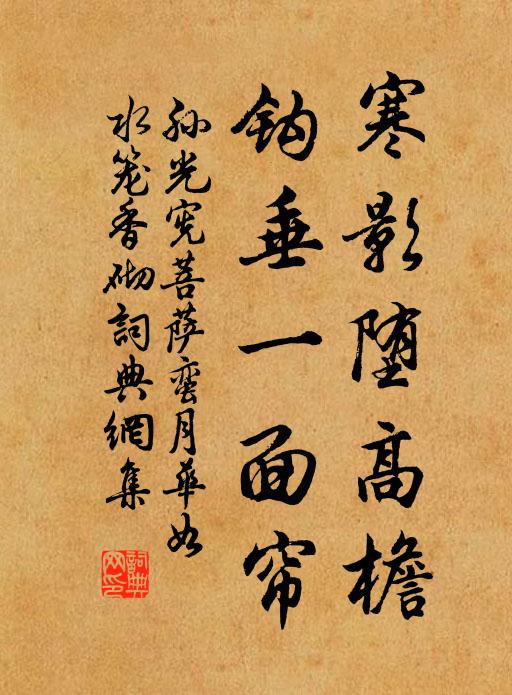 寒影堕高檐
钩垂一面帘
孙光宪菩萨蛮月华如
水笼香砌詞典網集
詞典网印